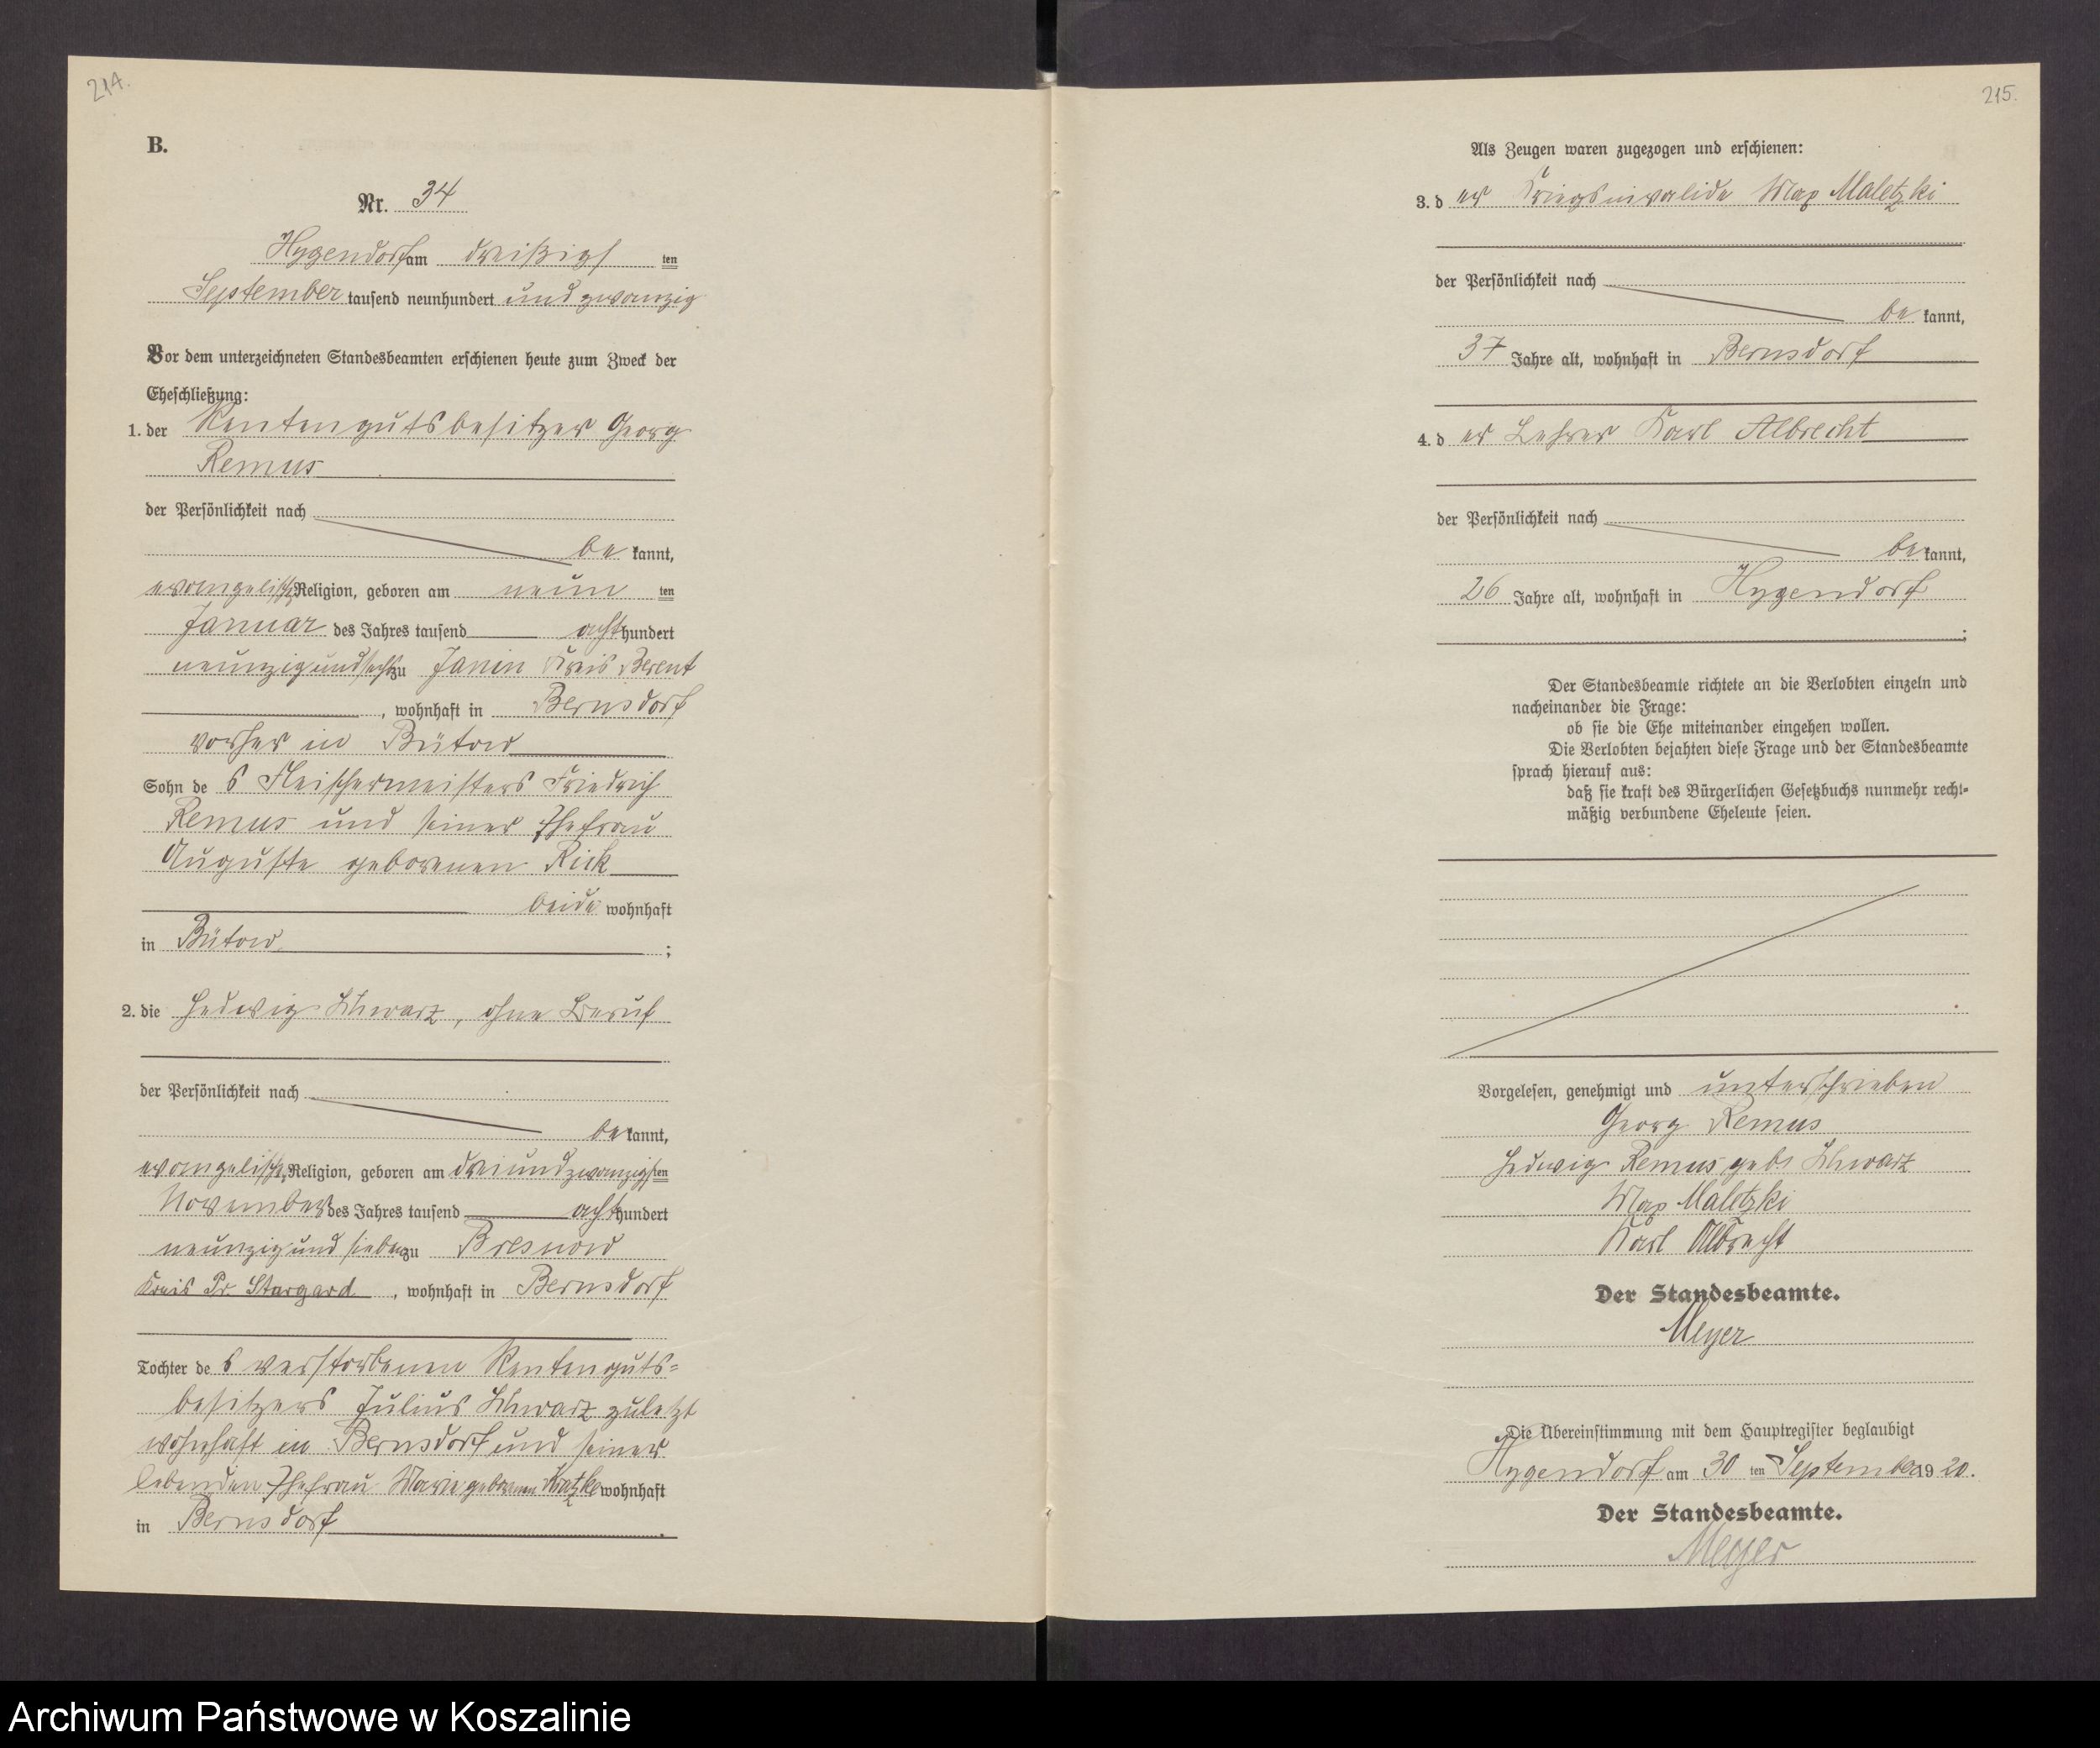 214.
B.
Nr. 34
Hygendorf am dreißigsten
September tausend neunhundert und zwanzig
Vor dem unterzeichneten Standesbeamten erschienen heute zum Zweck der
Eheschließung:
1. der Rentengutsbesitzer Georg
Remus
der Persönlichkeit nach
be kannt,
evangelischer Religion, geboren am neun ten
Januar des Jahres tausend acht hundert
neunzig und sechs zu Janin Kreis Berent
, wohnhaft in Bernsdorf
vorher in Bütow
Sohn des Fleischermeisters Friedrich
Remus und seiner Ehefrau
Auguste geborenen Rick
beide wohnhaft
in Bütow ;
2. die Hedwig Schwarz, ohne Beruf
der Persönlichkeit nach
be kannt,
evangelischer Religion, geboren am dreiundzwanzigsten
November des Jahres tausend acht hundert
neunzig und sieben zu Bresnow
Kreis Pr. Stargard, wohnhaft in Bernsdorf
Tochter des verstorbenen Rentenguts=
besitzers Julius Schwarz zuletzt
wohnhaft in Bernsdorf und seiner
lebenden Ehefrau Marie geborenen Kratzke wohnhaft
in Bernsdorf .
215.
Als Zeugen waren zugezogen und erschienen:
3. der Kriegsinvalide Max Maletzki
der Persönlichkeit nach
be kannt,
37 Jahre alt, wohnhaft in Bernsdorf
4. der Lehrer Karl Albrecht
der Persönlichkeit nach
be kannt,
26 Jahre alt, wohnhaft in Hygendorf
;
Der Standesbeamte richtete an die Verlobten einzeln und
nacheinander die Frage:
ob sie die Ehe miteinander eingehen wollen.
Die Verlobten bejahten diese Frage und der Standesbeamte
sprach hierauf aus:
daß sie kraft des Bürgerlichen Gesetzbuchs nunmehr recht-
mäßig verbundene Eheleute seien.
Vorgelesen, genehmigt und unterschrieben
Georg Remus
Hedwig Remus geb. Schwarz
Max Maletzki
Karl Albrecht
Der Standesbeamte.
Meyer
Die Übereinstimmung mit dem Hauptregister beglaubigt
Hygendorf am 30 ten September 19 20.
Der Standesbeamte.
Meyer
Archiwum Państwowe w Koszalinie